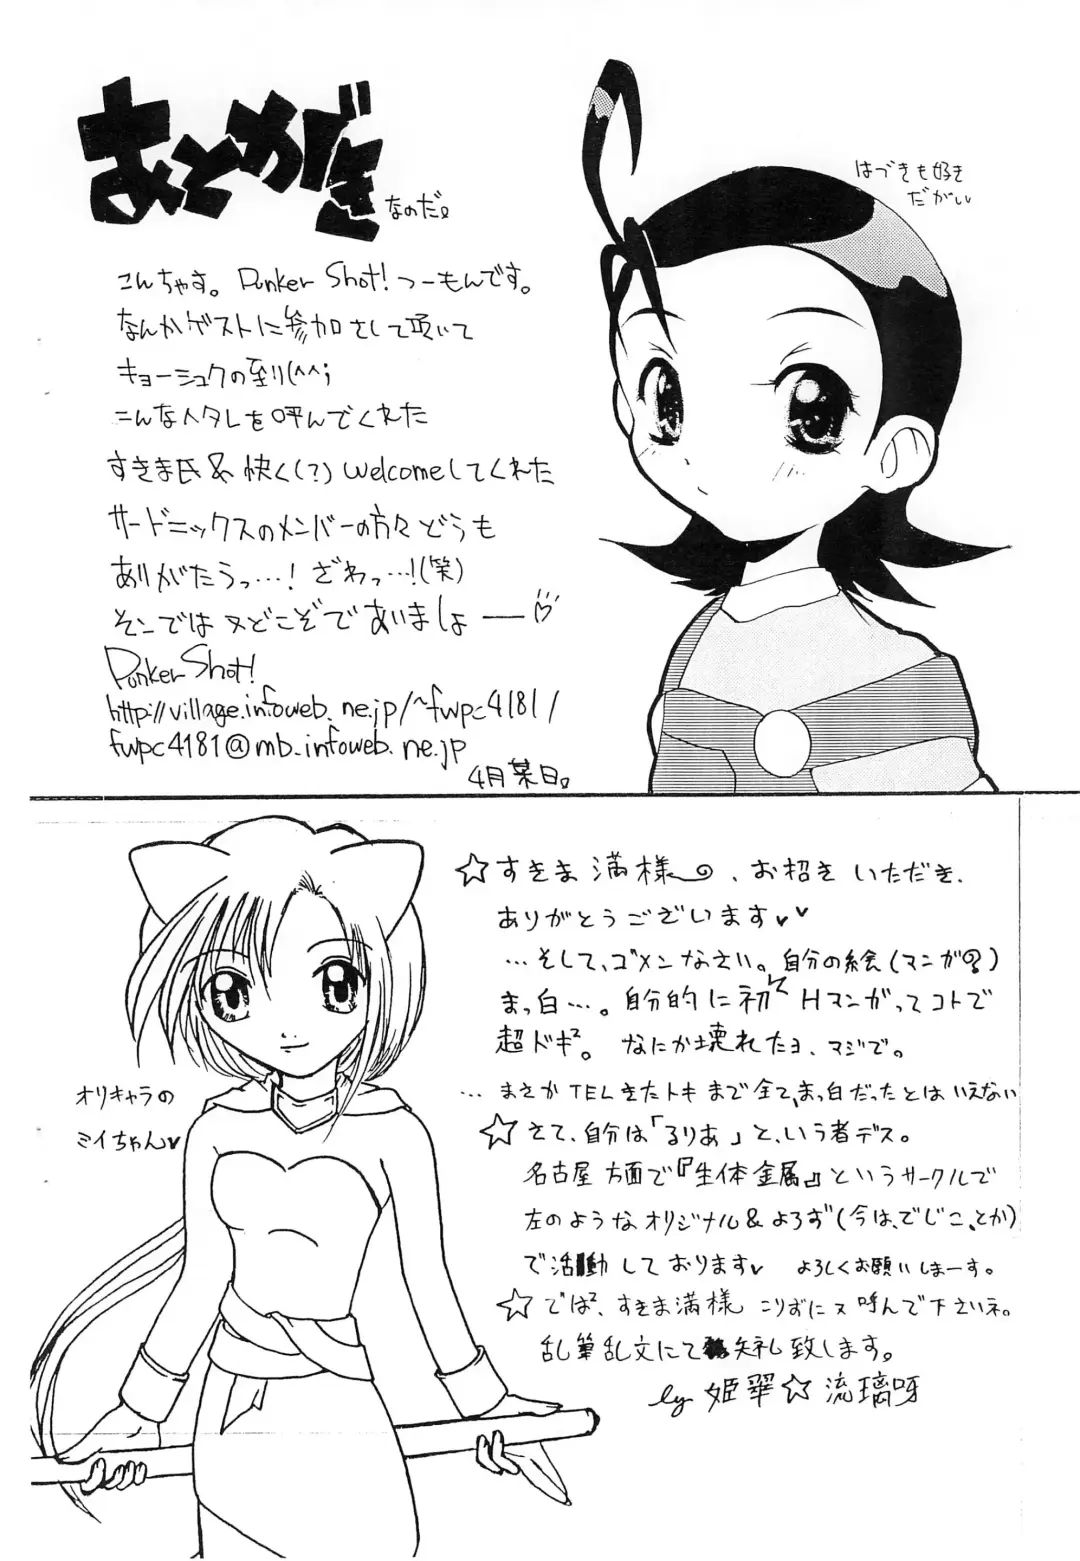 あとがき
なのだ。
はづきも好き
だがい
こんちゃす。Punker Shot!つーもんです。
なんかゲストに参加させて頂いて
キョーシュクの至り(^^;
こんなヘタレを呼んでくれた
すきま氏&快く(?)welcomeしてくれた
サードニックスのメンバーの方々どうも
ありがたうっ…!ざわっ…!(笑)
そこではヌどこぞであいましょーー♡
Punker Shot!
http://village.infoweb.ne.jp/~fwpc4181/
fwpc4181@mb.infoweb.ne.jp
4月某日。
☆すきま満様〜、お招きいただき、
ありがとうございます♥♥
…そして、ゴメンなさい。自分の絵(マンガ?)
まっ白…。自分的に初Hマンガってコトで
超ドキ²。なにか壊れたヨ、マジで。
…まさかTELきたトキまで全てまっ白だったとはいえない
☆さて、自分は「るりあ」と、いう者デス。
名古屋方面で『生体金属』というサークルで
左のようなオリジナル&よろず(今は、でじこ、とか)
で活動しております♥ よろしくお願いしまーす。
☆では²、すきま満様 こりずにヌ呼んで下さいネ。
乱筆乱文にて失礼致します。
by 姫翠☆流璃呀
オリキャラの
ミイちゃん♥